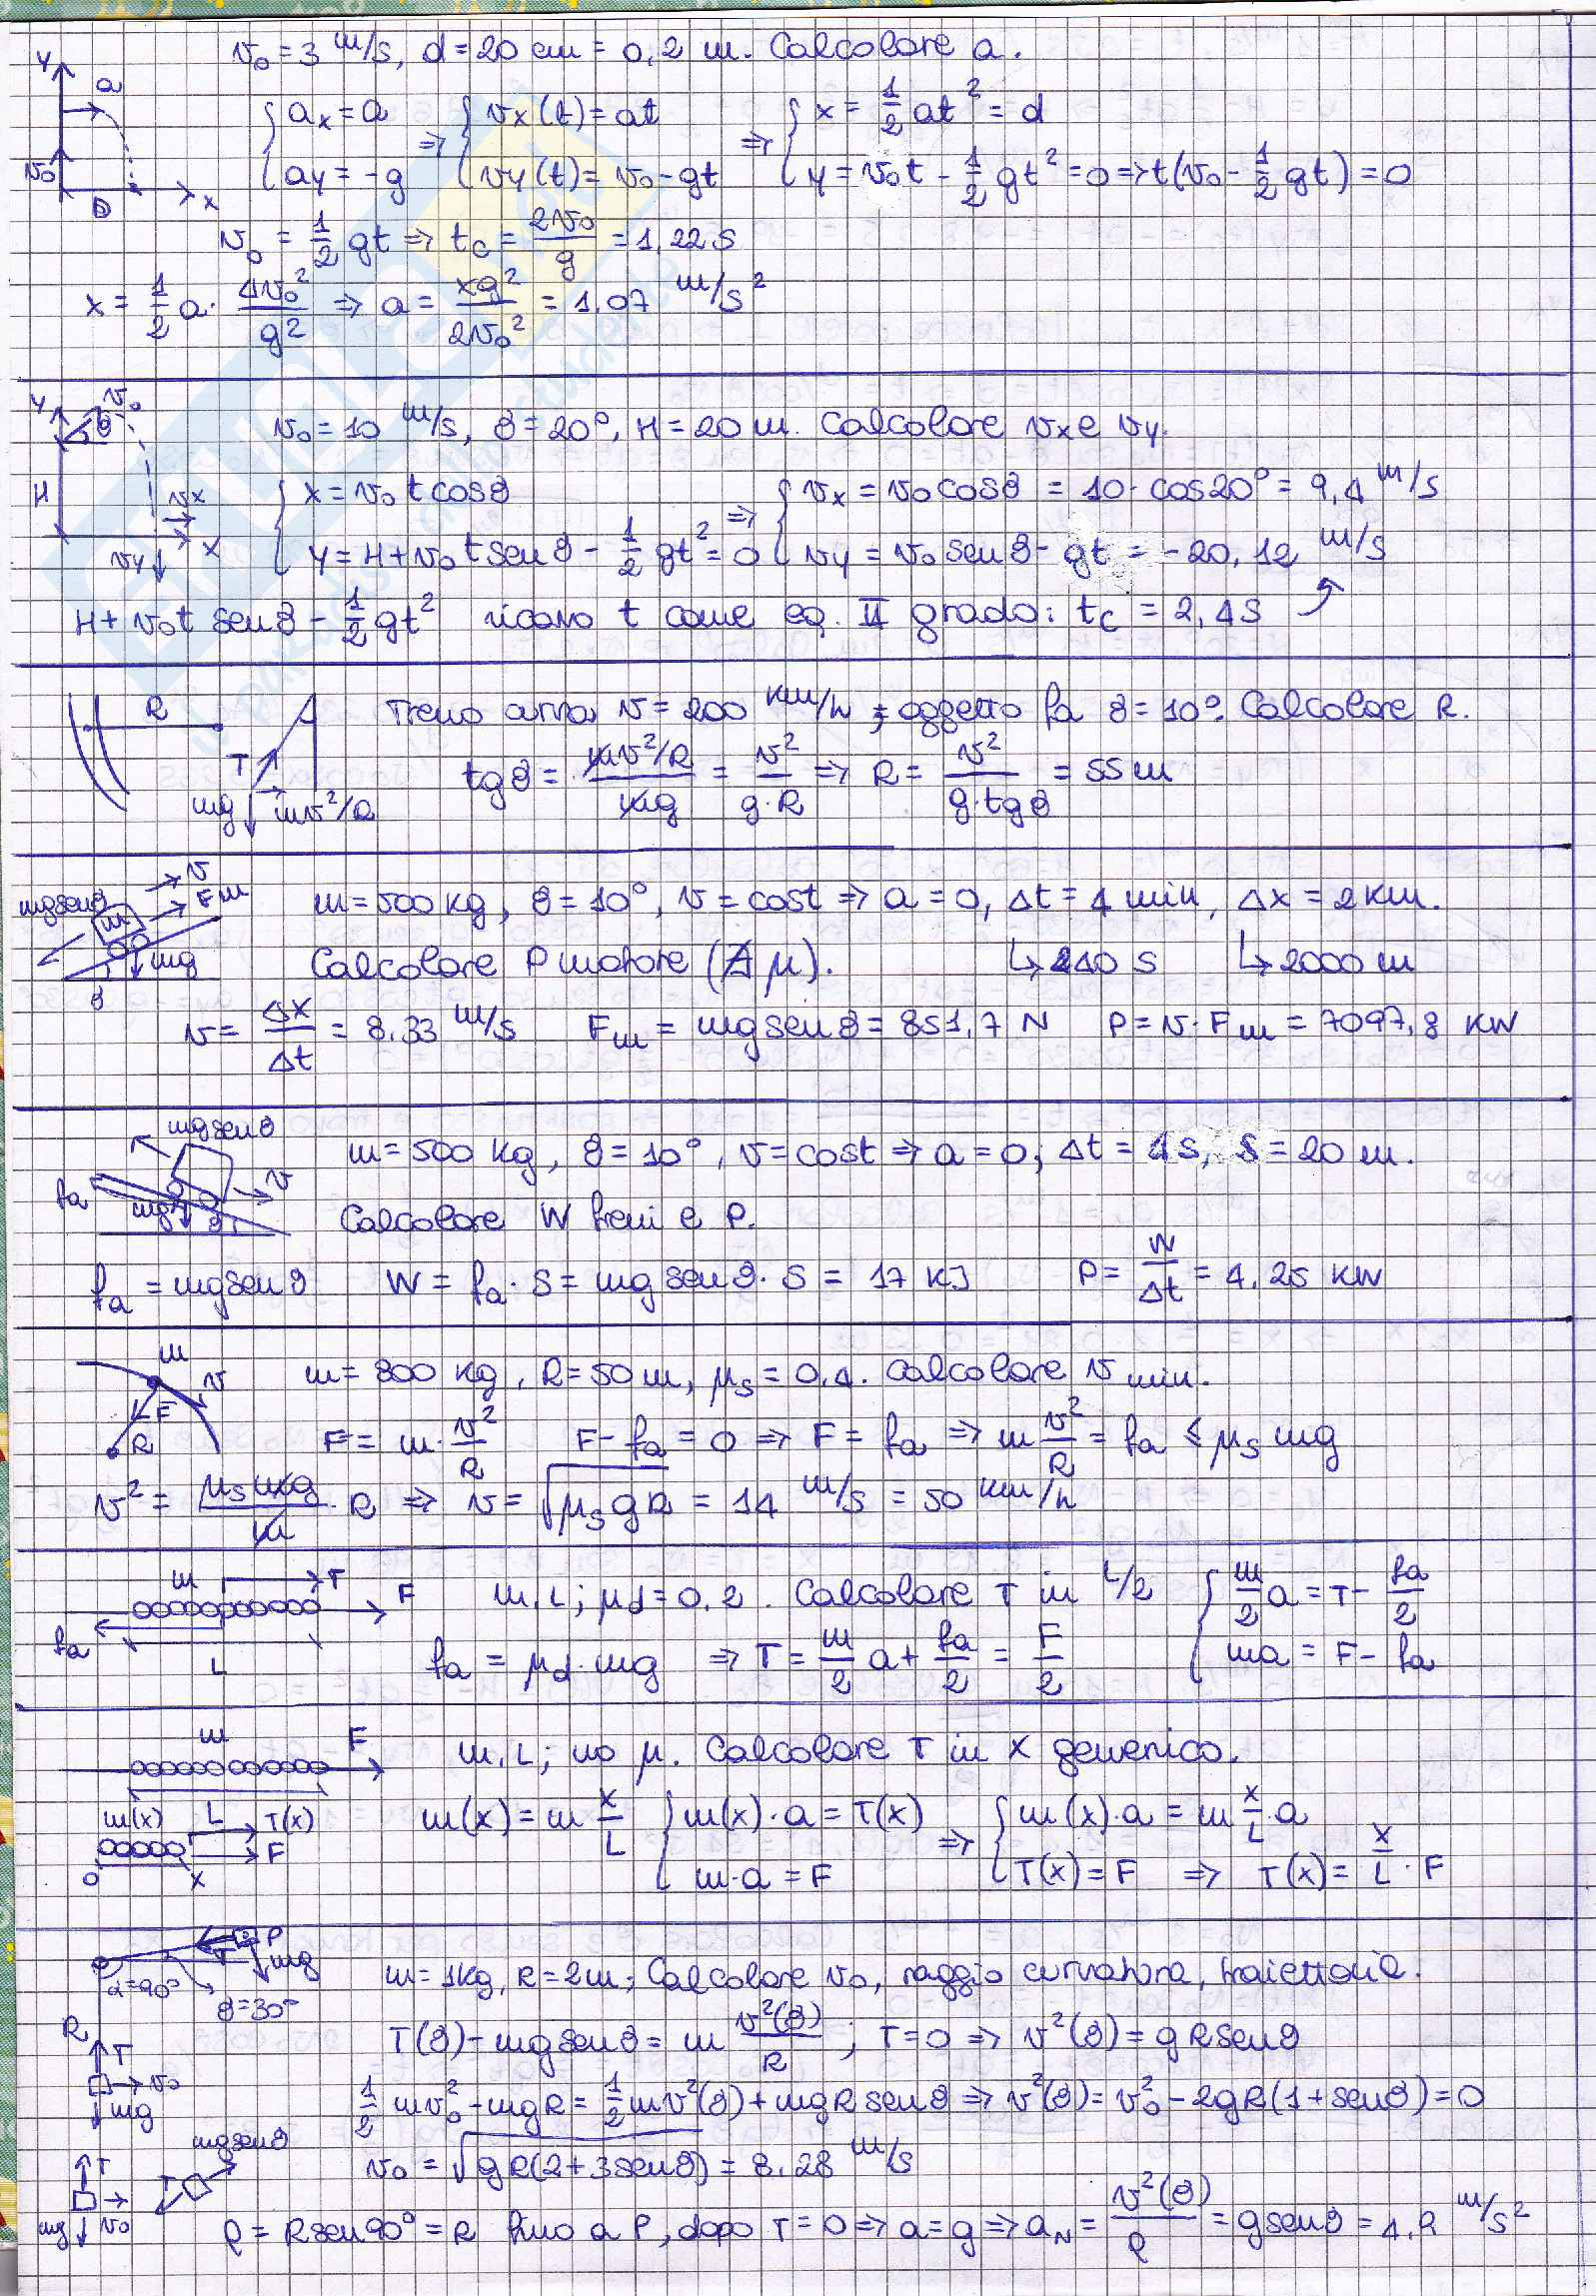 v₀ = 3 m/s, d = 20 cm = 0,2 m. Calcolare a.
y a v₀ D x
{ aₓ = a ⇒ { vₓ(t) = at ⇒ { x = 1/2 at² = d
{ a_y = -g { v_y(t) = v₀ - gt { y = v₀t - 1/2 gt² = 0 ⇒ t(v₀ - 1/2 gt) = 0
v₀ = 1/2 gt ⇒ t_c = 2v₀/g = 1,22 s
x = 1/2 a · 4v₀²/g² ⇒ a = xg²/2v₀² = 1,07 m/s²
y v₀ θ H vₓ x v_y
v₀ = 10 m/s, θ = 20°, H = 20 m. Calcolare vₓ e v_y.
{ x = v₀ t cosθ ⇒ { vₓ = v₀ cosθ = 10 · cos20° = 9,4 m/s
{ y = H + v₀ t senθ - 1/2 gt² = 0 { v_y = v₀ senθ - gt = -20,12 m/s
H + v₀t senθ - 1/2 gt² ricavo t come eq. II grado: t_c = 2,4 s
R T mg mv²/R
Treno curva v = 200 km/h ; oggetto fa θ = 10°. Calcolare R.
tgθ = mv²/R / mg = v²/g·R ⇒ R = v²/g·tgθ = 55 m
mg senθ m v Fm mg θ
m = 500 kg, θ = 10°, v = cost ⇒ a = 0, Δt = 4 min, Δx = 2 km.
Calcolare P motore (∄ μ). ↳ 240 s ↳ 2000 m
v = Δx/Δt = 8,33 m/s Fm = mg senθ = 851,7 N P = v · Fm = 7097,8 KW
mg senθ fa mg θ v
m = 500 kg, θ = 10°, v = cost ⇒ a = 0; Δt = 4 s, s = 20 m.
Calcolare W freni e P.
fa = mg senθ W = fa · s = mg senθ · s = 17 KJ P = W/Δt = 4,25 KW
m v F R
m = 800 kg, R = 50 m, μs = 0,4. Calcolare v min.
F = m · v²/R F - fa = 0 ⇒ F = fa ⇒ m v²/R = fa ≤ μs mg
v² = μs mg/m · R ⇒ v = √μs gR = 14 m/s = 50 km/h
m T F fa L
m, L; μd = 0,2. Calcolare T in L/2 { m/2 a = T - fa/2
fa = μd · mg ⇒ T = m/2 a + fa/2 = F/2 { ma = F - fa
m F
m, L; no μ. Calcolare T in x generico.
m(x) L T(x) F O x
m(x) = m x/L { m(x) · a = T(x) ⇒ { m(x) · a = m x/L · a
{ m · a = F { T(x) = F ⇒ T(x) = x/L · F
P T mg α=90° θ=30° R T v₀ mg
m = 1kg, R = 2m; Calcolare v₀, raggio curvatura, traiettoria.
T(θ) - mg senθ = m v²(θ)/R ; T = 0 ⇒ v²(θ) = gR senθ
1/2 mv₀² - mgR = 1/2 mv²(θ) + mgR senθ ⇒ v²(θ) = v₀² - 2gR(1 + senθ) = 0
T mg v₀ T mg senθ
v₀ = √gR(2 + 3senθ) = 8,28 m/s
ρ = R sen90° = R fino a P, dopo T = 0 ⇒ a = g ⇒ a_N = v²(θ)/ρ = g senθ = 4,9 m/s²